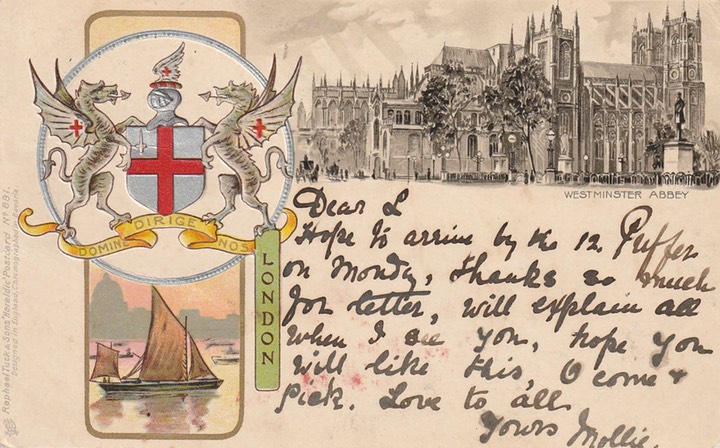 DOMINE DIRIGE NOS
LONDON
WESTMINSTER ABBEY
Raphael Tuck & Sons "Heraldic" Postcard No. 891.
Designed in England, Chromographed in
Dear L
Hope to arrive by the 12 Puffer
on Monday, thanks so much
for letter, will explain all
when I see you, hope you
will like this, O come &
Pick. Love to all
Yours Mollie.